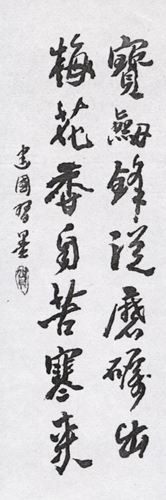 寶劍鋒從磨礪出
梅花香自苦寒來
建國習墨